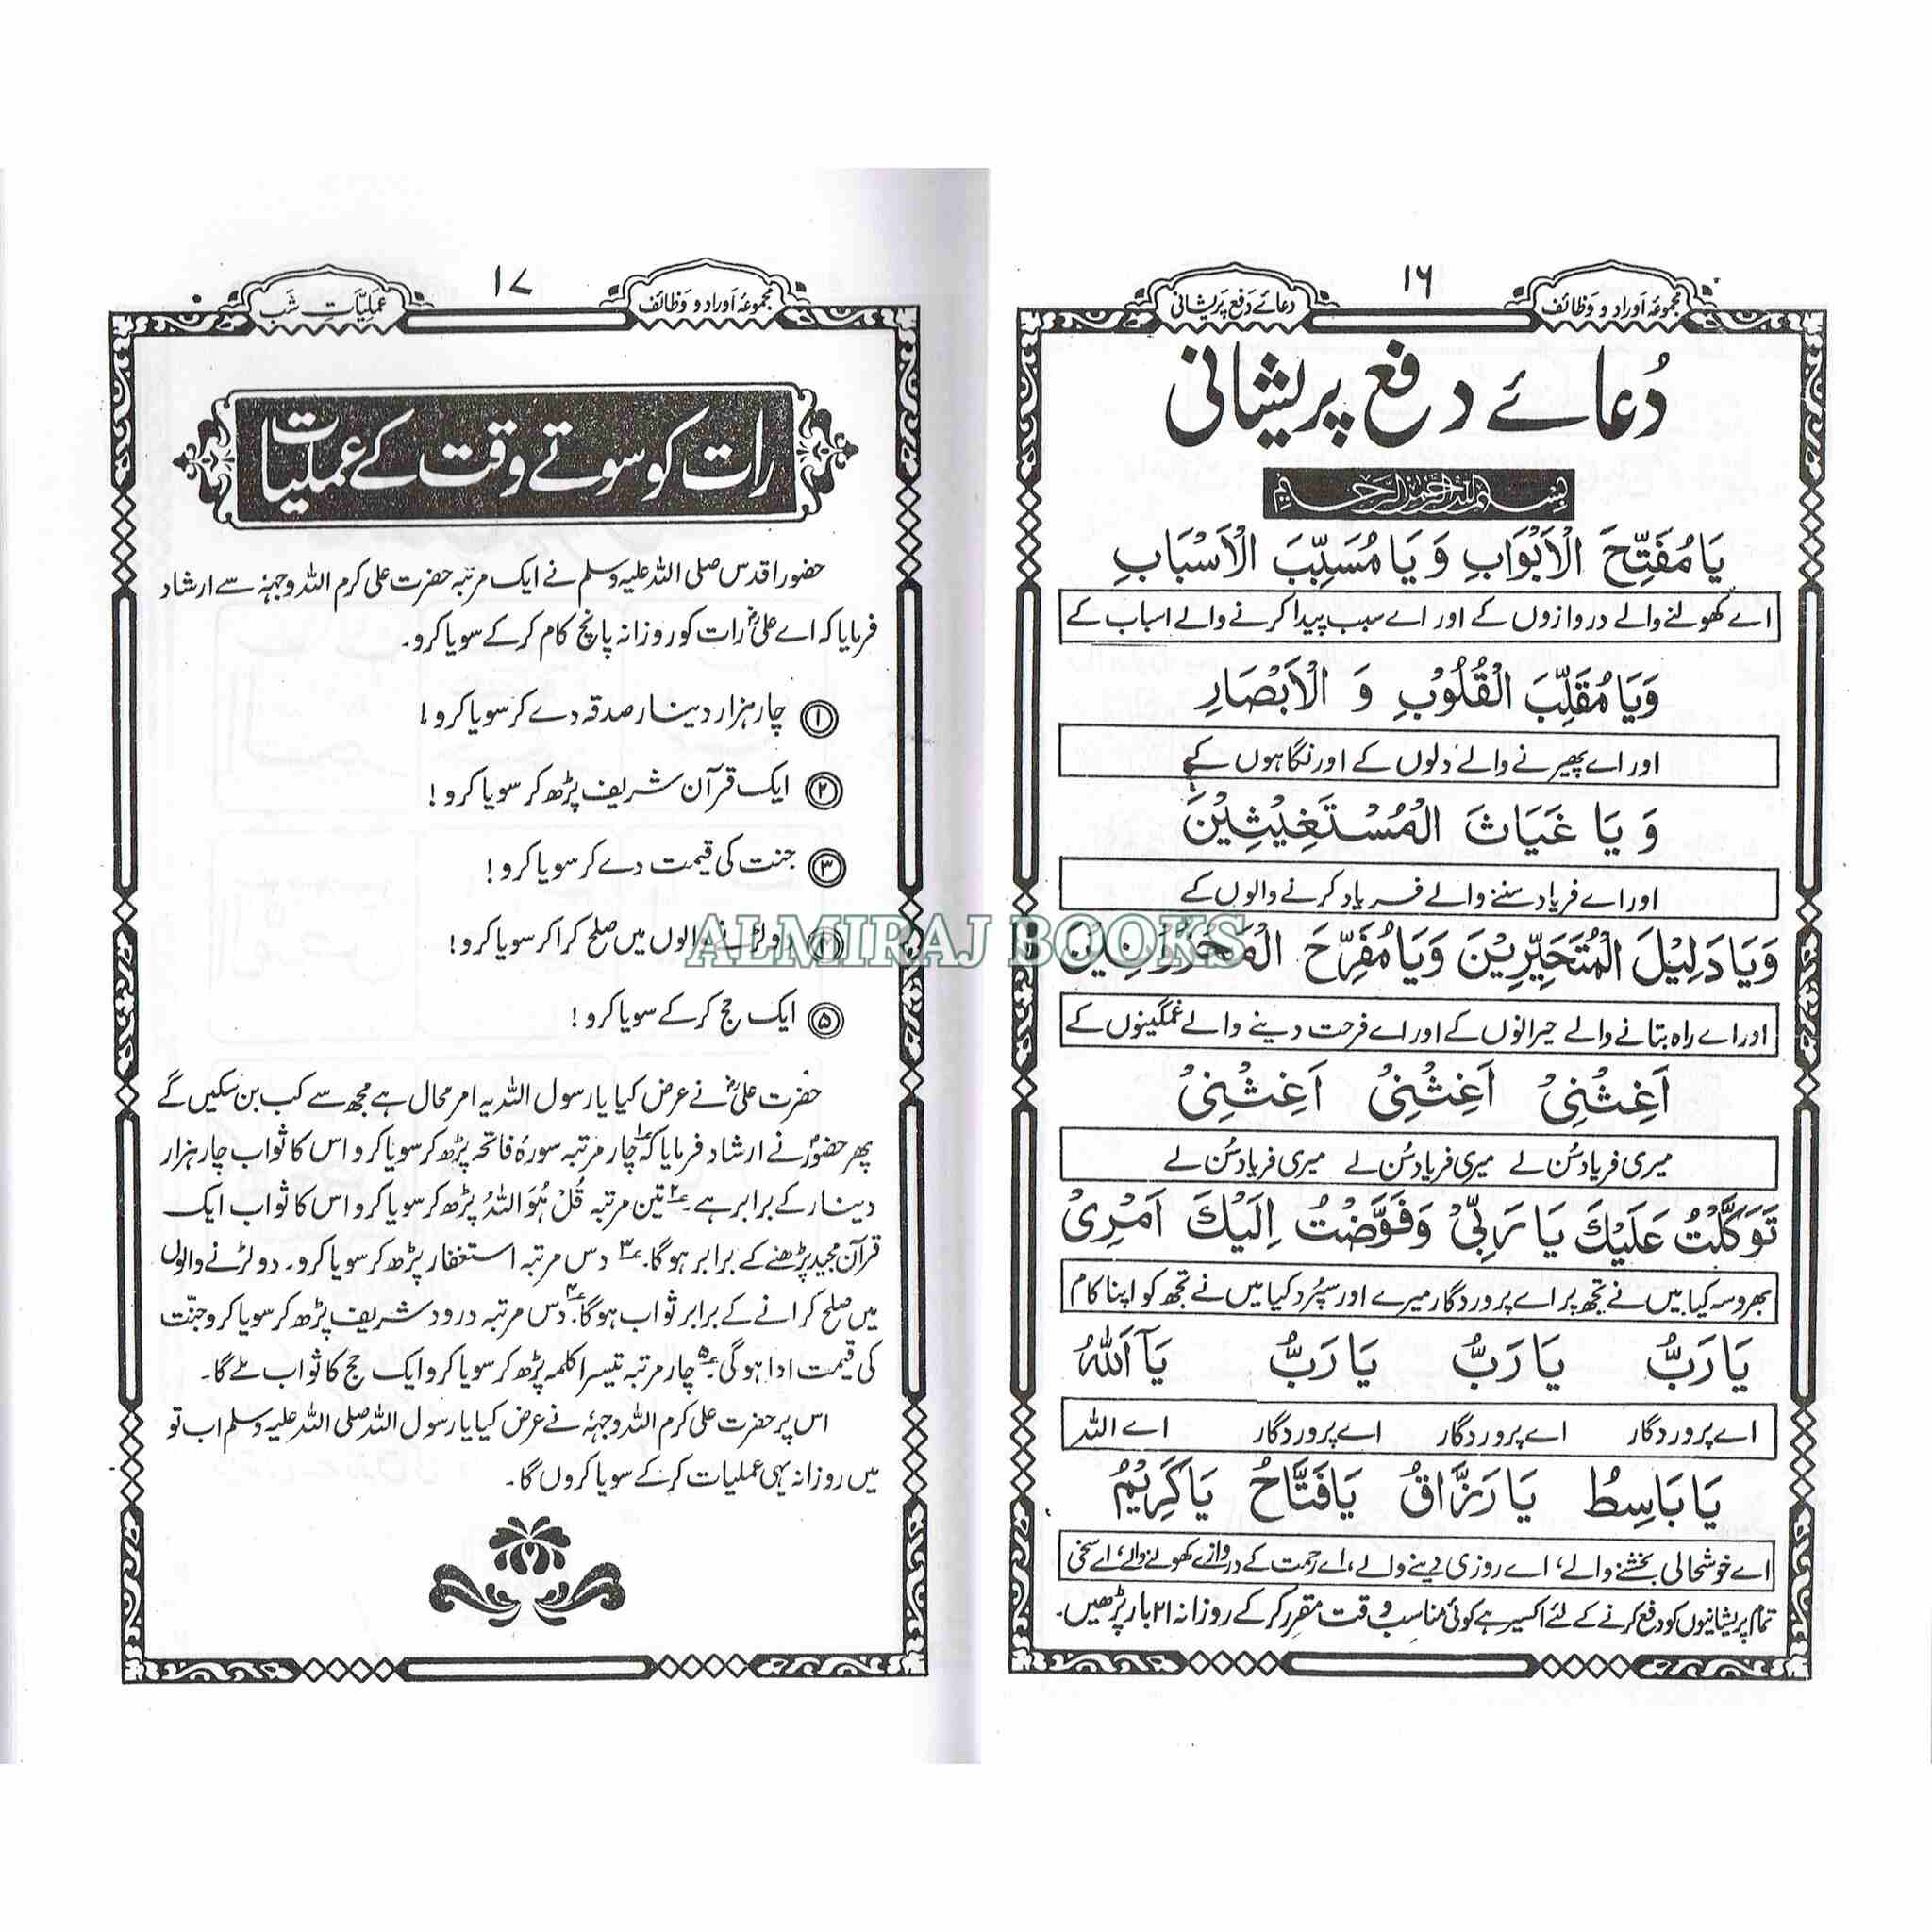 مجموعۂ اوراد و وظائف
۱۶
دعائے دفع پریشانی
دُعائے دفع پریشانی
بِسْمِ اللہِ الرَّحْمٰنِ الرَّحِیْمِ
يَا مُفَتِّحَ الْاَبْوَابِ وَ يَا مُسَبِّبَ الْاَسْبَابِ
اے کھولنے والے دروازوں کے اور اے سبب پیدا کرنے والے اسباب کے
وَيَا مُقَلِّبَ الْقُلُوْبِ وَ الْاَبْصَارِ
اور اے پھیرنے والے دلوں کے اور نگاہوں کے
وَ يَا غَيَاثَ الْمُسْتَغِيْثِيْنَ
اور اے فریاد سننے والے فریاد کرنے والوں کے
وَيَا دَلِيْلَ الْمُتَحَيِّرِيْنَ وَيَا مُفَرِّحَ الْمَحْزُوْنِيْنَ
اور اے راہ بتانے والے حیرانوں کے اور اے فرحت دینے والے غمگینوں کے
اَغِثْنِىْ اَغِثْنِىْ اَغِثْنِىْ
میری فریاد سُن لے میری فریاد سُن لے میری فریاد سُن لے
تَوَكَّلْتُ عَلَيْكَ يَا رَبِّىْ وَفَوَّضْتُ اِلَيْكَ اَمْرِىْ
بھروسہ کیا میں نے تجھ پر اے پروردگار میرے اور سپُرد کیا میں نے تجھ کو اپنا کام
يَا رَبُّ يَا رَبُّ يَا رَبُّ يَآ اَللّٰهُ
اے پروردگار اے پروردگار اے پروردگار اے اللہ
يَا بَاسِطُ يَا رَزَّاقُ يَا فَتَّاحُ يَا كَرِيْمُ
اے خوشحالی بخشنے والے، اے روزی دینے ولے، اے رحمت کے دروازے کھولنے والے، اے سخی
تمام پریشانیوں کو دفع کرنے کے لئے اکسیر ہے کوئی مناسب وقت مقرر کر کے روزانہ ۲۱ بار پڑھیں۔
مجموعۂ اوراد و وظائف
۱۷
عملیّاتِ شب
رات کو سوتے وقت کے عملیات
حضور اقدس صلی اللہ علیہ وسلم نے ایک مرتبہ حضرت علی کرم اللہ وجہہٗ سے ارشاد
فرمایا کہ اے علیؓ رات کو روزانہ پانچ کام کر کے سویا کرو۔
۱ چار ہزار دینار صدقہ دے کر سویا کرو!
۲ ایک قرآن شریف پڑھ کر سویا کرو!
۳ جنت کی قیمت دے کر سویا کرو!
۴ دو لڑنے والوں میں صلح کرا کر سویا کرو!
۵ ایک حج کر کے سویا کرو!
حضرت علیؓ نے عرض کیا یا رسول اللہ یہ امر محال ہے مجھ سے کب بن سکیں گے
پھر حضورؐ نے ارشاد فرمایا کہ ۱ چار مرتبہ سورۂ فاتحہ پڑھ کر سویا کرو اس کا ثواب چار ہزار
دینار کے برابر ہے۔ ۲ تین مرتبہ قُلْ ہُوَ اللہُ پڑھ کر سویا کرو اس کا ثواب ایک
قرآن مجید پڑھنے کے برابر ہوگا۔ ۳ دس مرتبہ استغفار پڑھ کر سویا کرو۔ دو لڑنے والوں
میں صلح کرانے کے برابر ثواب ہوگا۔ ۴ دس مرتبہ درود شریف پڑھ کر سویا کرو جنّت
کی قیمت ادا ہوگی۔ ۵ چار مرتبہ تیسرا کلمہ پڑھ کر سویا کرو ایک حج کا ثواب ملے گا۔
اس پر حضرت علی کرم اللہ وجہہٗ نے عرض کیا یا رسول اللہ صلی اللہ علیہ وسلم اب تو
میں روزانہ یہی عملیات کر کے سویا کروں گا۔
ALMIRAJ BOOKS